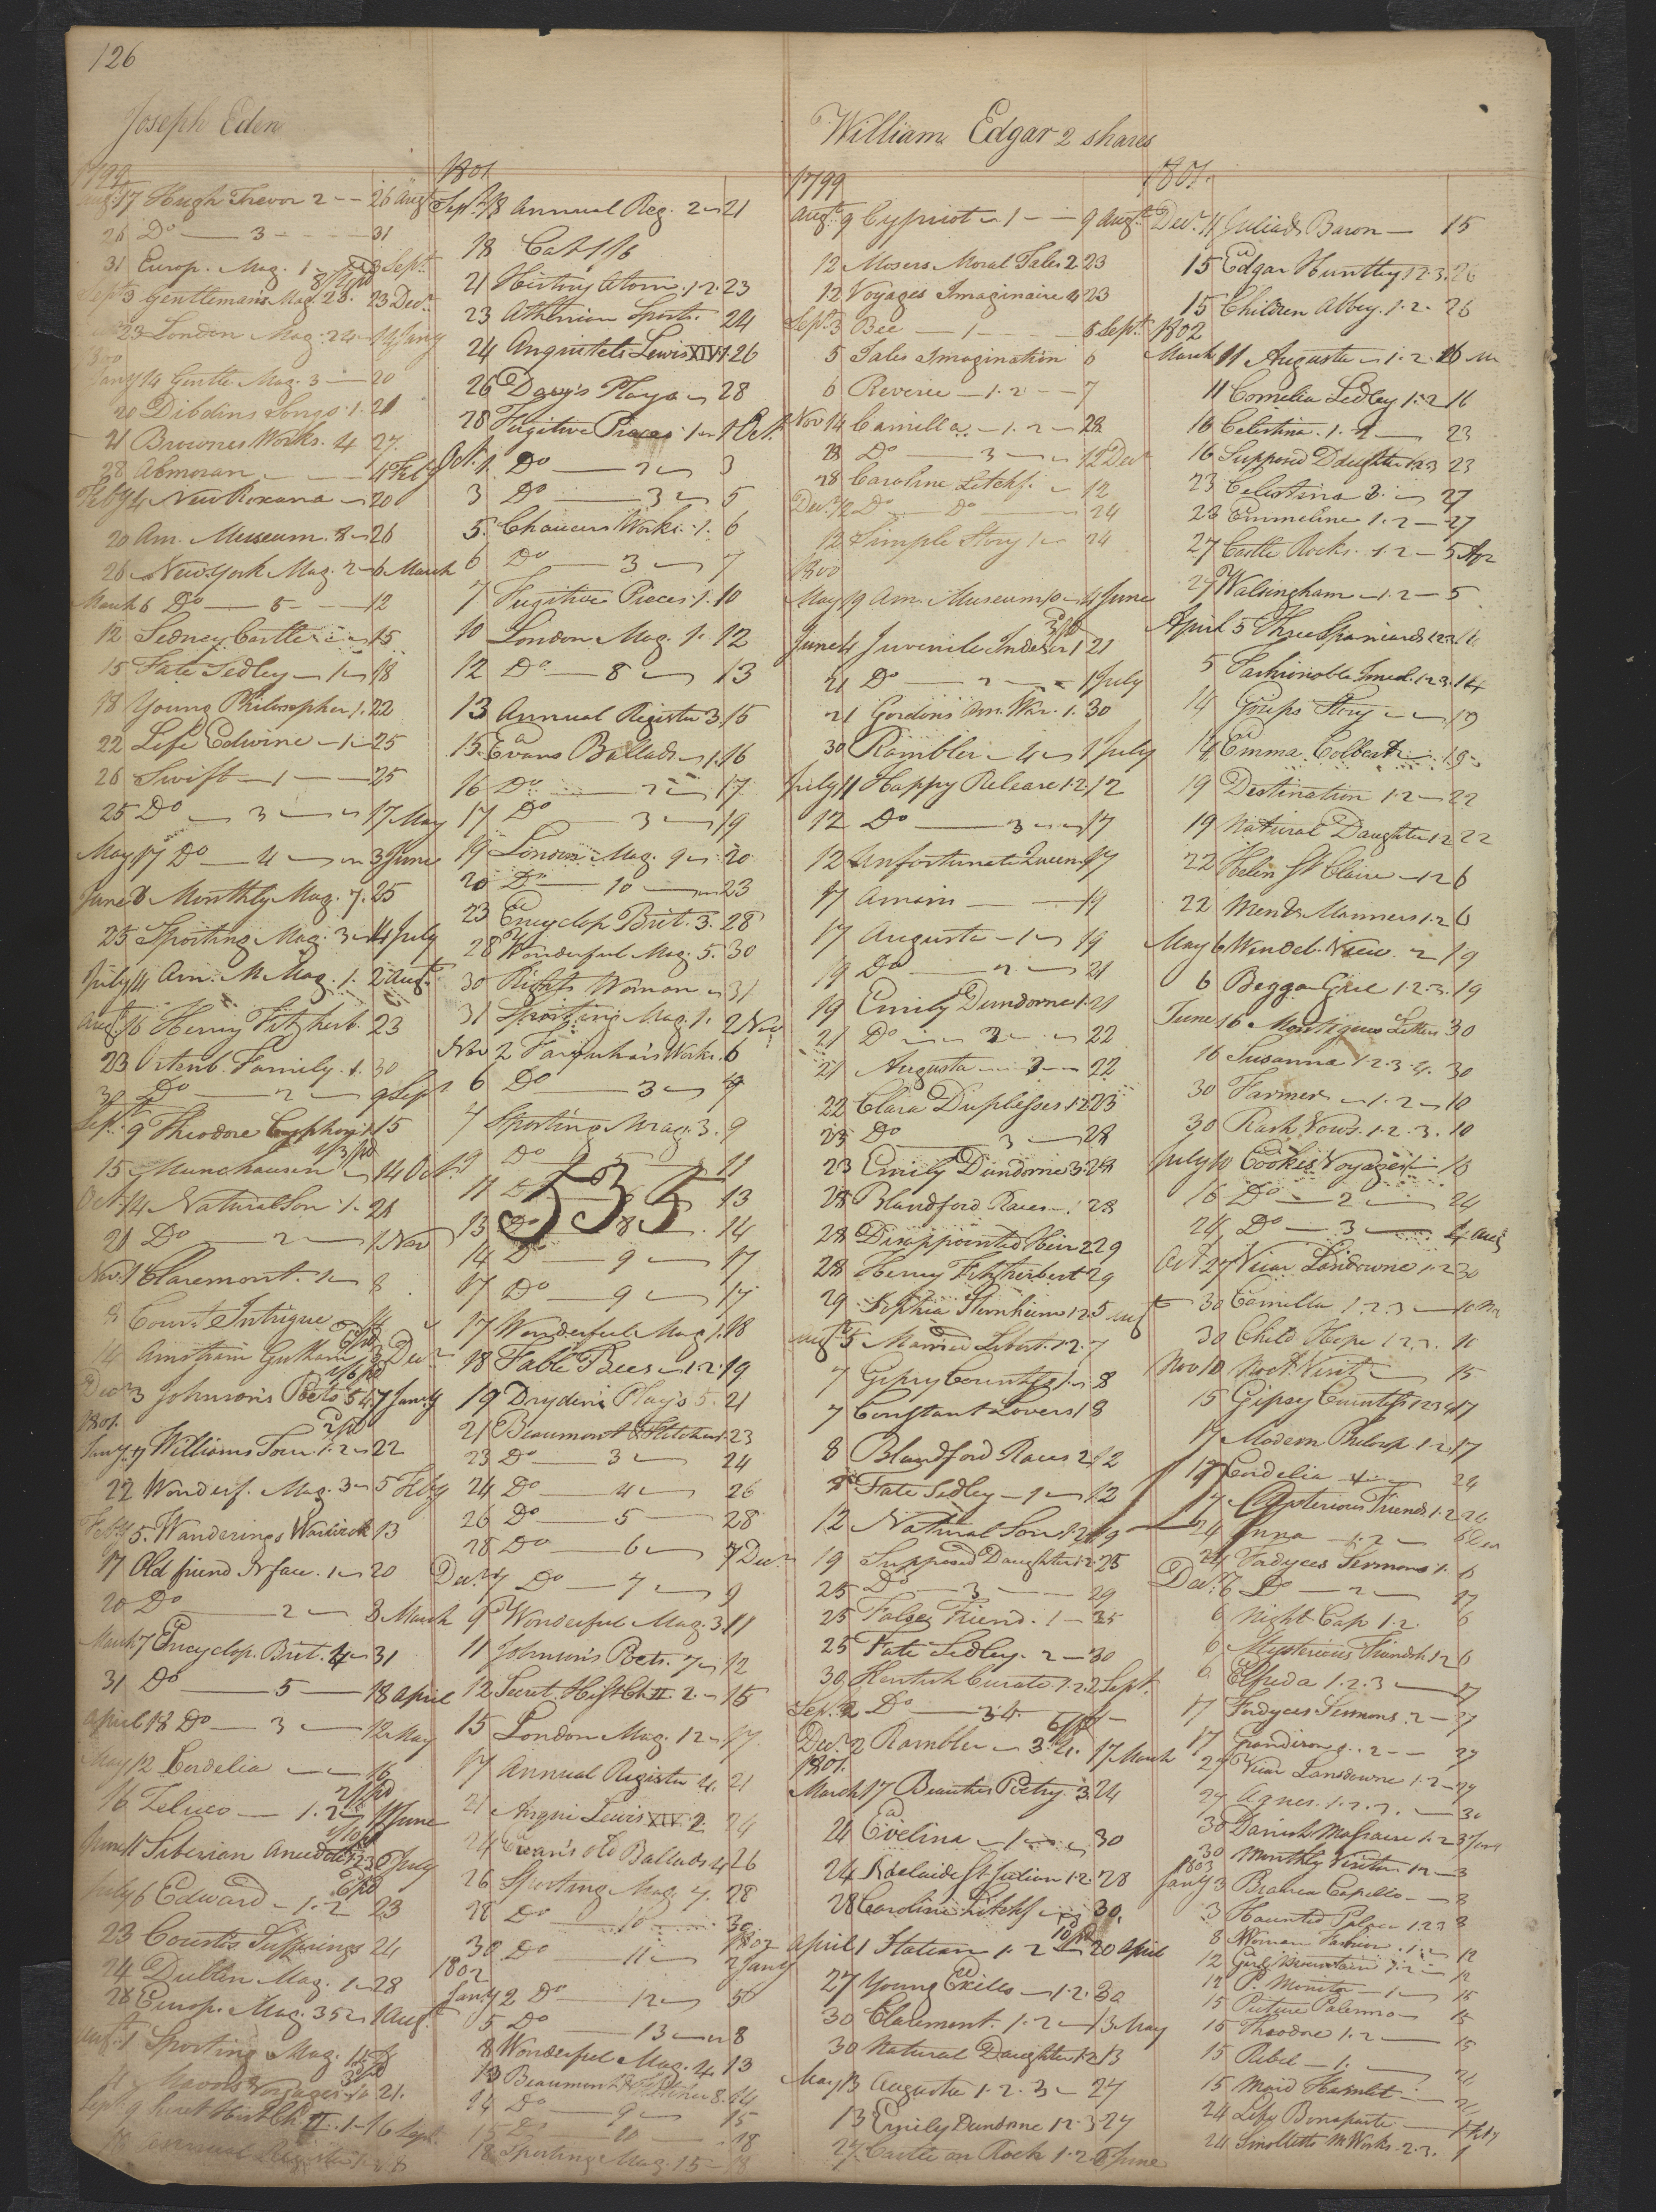 126
Joseph Eden
1799
Augt 17 Hugh Trevor 2 26 Augt
26 Do 3 31
31 Europ. Mag. 1 3 Sept
Sept 3 Gentleman's Mag. 28. 23 Decr
23 London Mag. 24 14 Jany
1800
Jany 14 Gentle. Mag. 3 20
20 Dibdins Songs. 1. 21
21 Brownes Works. 4 27.
28 Almoran 4 Feby
Feby 4 New Roxana 20
20 Am. Museum. 8 26
26 New York Mag. 2 6 March
March 6 Do 5 12
12 Sedney Castle 15
15 Fate Sedley 1 18
18 Young Philosopher 1. 22
22 Life Edwine 1 25
26 Swift 1 25
25 Do 3 17 May
May 17 Do 4 3 June
June 3 Monthly Mag. 7. 25
25 Sporting Mag. 3 4 July
July 4 Am. M. Mag. 1. 2 Augt
Augt 16 Henry Fitzherb. 23
23 Ortenb. Family. 1. 30
30 Do 2 9 Sept
Sept 9 Theodore Cyphon 1. 15
15 Munchausen 14 Oct.
Oct 14 Natural Son 1. 21
21 Do 2 1 Nov
Nov. 1 Claremont. 1 8
8 Court Intrigue 14
14 3 Decr
Decr 3 Johnson's Poets 5 17 Jany
1801.
Jany 17 Williams Tour 1.2 22
22 Wonderf. Mag. 3 5 Feby
Feby 5. Wanderings Warwick 13
17 Old friend N face. 1 20
20 Do 2 8 March
March 7 Encyclop. Brit. 4 31
31 Do 5 18 April
April 18 Do 3 12 May
May 12 Cordelia 16
16 Zeluco 1.2 11 June
June 11 Siberian Anecdotes 1 2 3 6 July
July 6 Edward 1.2 23
23 Courtis Sufferings 24
24 Dublin Mag. 1 28
28 Europ. Mag. 35 1 Augt
Augt 1 Sporting Mag. 11
Mavors Voyages 21.
Sept 9 Secret Hist Ch. II. 1 16 Sept.
Annual Register
1801
Sept. 18 Annual Reg. 2 21
18 Cat 1/6
21 History Atom. 1.2. 23
23 Athenian Sports. 24
24 Anquetels Lewis XIV 1. 26
26 Davy's Plays 28
28 Fugitive Pieces 1 1 Oct.
Oct. 1 Do 2 3
3 Do 3 5
5. Chaucers Works. 1. 6
6 Do 3 7
7 Fugitive Pieces. 1. 10
10 London Mag. 1. 12
12 Do 8 13
13 Annual Register 3. 15
15. Evans Ballads 1. 16
16 Do 2 17
17 Do 3 19
19 London Mag. 9 20
20 Do 10 23
23 Encyclop Brit. 3. 28
28 Wonderful Mag. 5. 30
30 Rights Woman 31
31 Sporting Mag. 1. 2 Nov
Nov 2 Farquhar's Works. 6
6 Do 3 7
7 Sporting Mag. 3. 9
9 Do 5 11
11 Do 13
535
13 Do 8 14
14 Do 9 17
17 Do 9 17
17 Wonderful Mag 1. 18
18 Fable Bees 1.2. 19
19 Dryden's Plays 5. 21
21 Beaumont & Fletcher 1. 23
23 Do 3 24
24 Do 4 26
26 Do 5 28
28 Do 6 7 Decr
Decr 7 Do 7 9
9 Wonderful Mag. 3. 11
11 Johnson's Poets. 7 12
12 Secret. Hist Ch II. 2. 15
15 London Mag. 12 17
17 Annual Register 4. 21
21 Anqui Lewis XIV 2. 24
24 Evan's old Ballads 4 26
26 Sporting Mag. 7. 28
28 Do 10 30
30 Do 11 2 Jany
1802
Jany 2 Do 12 5
5 Do 13 8
8 Wonderful Mag. 4. 13
13 Beaumont & Fletcher 8. 14
14 Do 9 15
15 Do 10 18
18 Sporting Mag. 15 18
William Edgar 2 shares
1799
Augt 9 Cypriot 1 9 Augt
12 Mosers Moral Tales 2 23
12 Voyages Imaginaire 4 23
Sept. 3 Bee 1 5 Sept
5 Tales Imagination 6
6 Reverie 1.2 7
Nov 14 Camilla 1.2 28
28 Do 3 12 Decr
28 Caroline Litchf. 12
Decr 12 Do Do 24
12 Simple Story 1 24
1800
May 19 Am. Museum 10 4 June
June 4 Juvenile Indescr 1 21
21 Do 2 1 July
21 Gordons Am. War. 1. 30
30 Rambler 4 1 July
July 11 Happy Release 1.2. 12
12 Do 3 17
12 Unfortunate Queen 17
17 Amiin 19
17 Augusta 1 19
19 Do 2 21
19 Emily Dundorne 1. 21
21 Do 2 22
21 Augusta 3 22
22 Clara Duplesses 1.2 23
23 Do 3 28
23 Emily Dundorne 3. 28
28 Blandford Races 1 28
28 Disappointed Heir 2 29
28 Henry Fitzherbert 29
29 Sophia Sternheim 1.2. 5 Augt
Augt 5 Married Libert. 1.2. 7
7 Gipsy Countess 1 8
7 Constant Lovers 1 8
8 Blandford Races 2. 12
8 Fate Sedley 1 12
12 Natural Son 1.2 19
19 Supposed Daughter 1.2. 25
25 Do 3 29
25 False Friend. 1 25
25 Fate Sedley. 2 30
30 Kentish Curate 1.2. 2 Sept.
Sep. 2 Do 3 4
Decr 2 Rambler 3.4. 17 March
1801.
March 17 Beauties Poetry. 3. 24
24 Evelina 1 30
24 Adelaide St Julian 1.2. 28
28 Caroline Litchf 30.
April 1 Statira 1.2 20 April
27 Young Exiles 1.2. 30
30 Claremont. 1.2 13 May
30 Natural Daughter 1.2 13
May 13 Augusta 1.2.3 27
13 Emily Dundorne 1 2.3 27
27 Castle on Rock 1.2 6 June
1801.
Decr 11 Juliads Baron 15
15 Edgar Huntley 1 2.3. 26
15 Children Abbey. 1.2. 26
1802
March 11 Augusta 1.2. 16
11 Cornelia Sedley 1.2 16
16 Celestina. 1.2 23
16 Supposed Daughter 1.2.3 23
23 Celestina 3. 27
23 Emmeline 1.2 27
27 Castle Rock. 1.2 5 Apr
27 Walsingham 1.2 5
April 5 Three Spaniards 1.2.3. 14
5 Fashionable Invol. 1.2.3. 14
14 Gosips Story 19
14 Emma Colbert 19
19 Destination 1.2 22
19 Natural Daughter 1 2 22
22 Helen St Claire 1 2 6
22 Mental Manners 1.2 6
May 6 19
6 Beggar Girl 1.2.3. 19
June 16 Montigues Letters 30
16 Susanna 1.2.3.4. 30
30 Farmer 1.2 10
30 Rash Vows. 1.2.3. 10
July 10 Cookes Voyages 1 16
16 Do 2 24
24 Do 3 4 Aug
Oct 27 Vicar Landsdowne 1.2 30
30 Camilla 1.2.3 10 Nov
30 Child Hope 1.2.3. 10
Nov 10 Noct. Visit 15
15 Gipsy Countess 1 2 3 4 17
17 Modern Philosop. 1.2. 17
17 Cordelia 24
17 Mysterious Friends. 1.2 24
24 Anna 1.2 6 Decr
24 Fordyces Sermons 1. 6
Decr 6 Do 2 17
6 Night Cap 1.2. 6
6 Mysterious Friendsh 1 2 6
6. Elfreda 1.2.3 17
17 Fordyces Sermons. 2 27
17 Grandison 1.2 27
27 Vicar Lansdowne 1.2 27
27 Agnes. 1.2.3. 30
30 Danish Massacre 1.2 3 Jany
30 Monthly Visitor 1.2 3
1803
Jany 3 Bianca Capello 8
3 Haunted Palace 1.2.3 8
8 12
12 Girl Mountain 1.2 12
12 P. Monitor 1 15
15 Picture Palermo 15
15 Theodore 1.2 15
15 Rebel 1. 24
15 Maid Hamlet 24
24 Life Bonaparte 1 Feby
24 Smolletts M Works. 2.3. 1